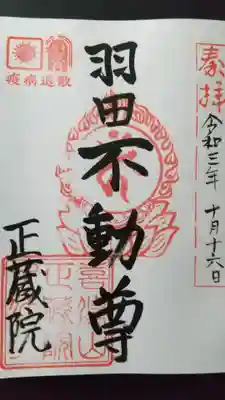 奉拝
令和三年 十月十六日
羽田不動尊
疫病退散
正蔵院